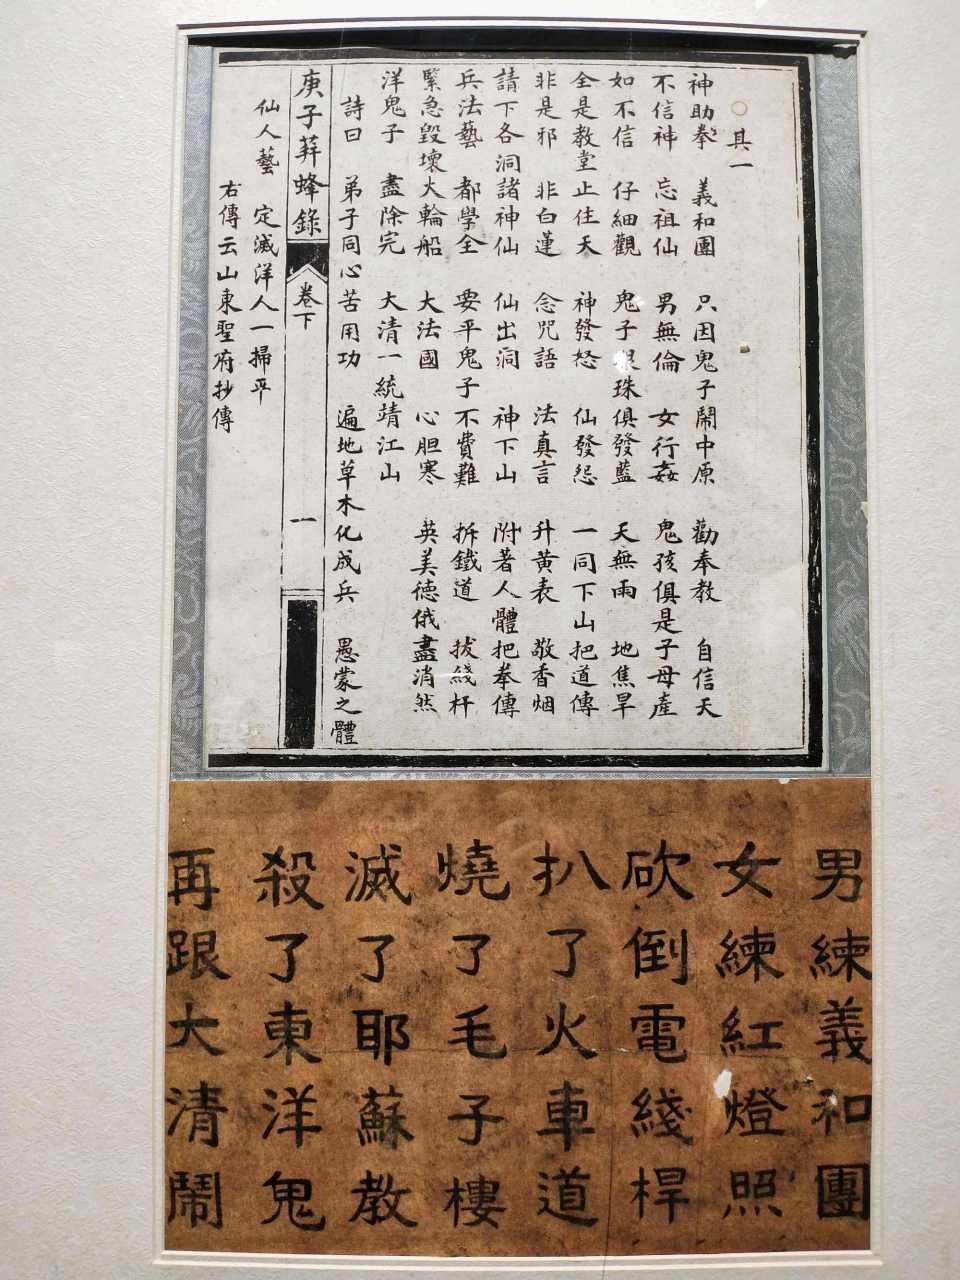 ○其一
神助拳 義和團 只因鬼子鬧中原 勸奉教 自信天
不信神 忘祖仙 男無倫 女行姦 鬼孩俱是子母產
如不信 仔細觀 鬼子眼珠俱發藍 天無雨 地焦旱
全是教堂止住天 神發怒 仙發怨 一同下山把道傳
非是邪 非白蓮 念咒語 法真言 升黃表 敬香烟
請下各洞諸神仙 仙出洞 神下山 附著人體把拳傳
兵法藝 都學全 要平鬼子不費難 拆鐵道 拔綫杆
緊急毀壞火輪船 大法國 心胆寒 英美德俄盡消然
洋鬼子 盡除完 大清一統靖江山
詩曰 弟子同心苦用功 遍地草木化成兵 愚蒙之體
庚子荓蜂錄 卷下 一
仙人藝 定滅洋人一掃平
右傳云山東聖府抄傳
男練義和團
女練紅燈照
砍倒電綫桿
扒了火車道
燒了毛子樓
滅了耶蘇教
殺了東洋鬼
再跟大清鬧